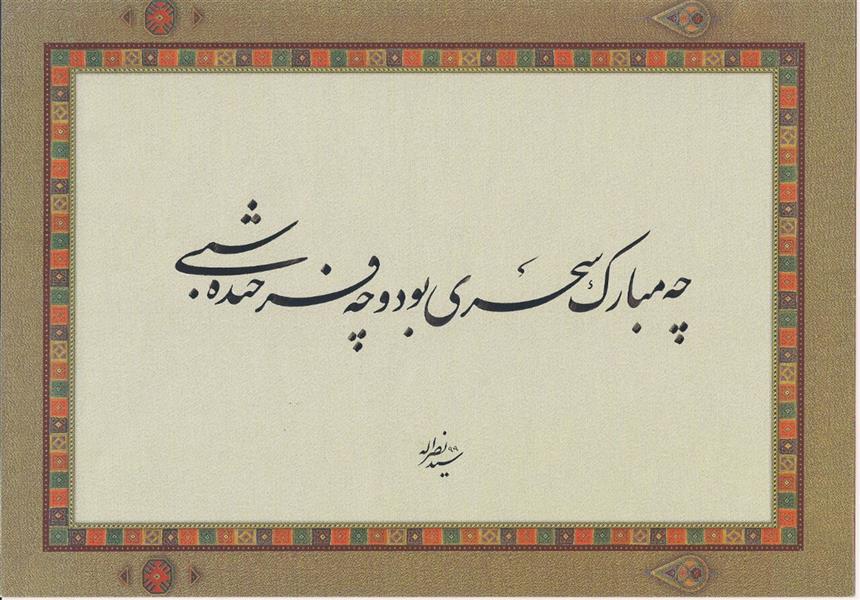 چه مبارک سحری بود و چه فرخنده شبی
سید نصراله ۹۹